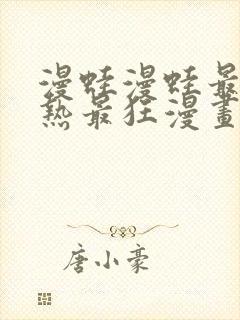 漫蛙漫蛙最
熱最狂漫畫
唐小豪